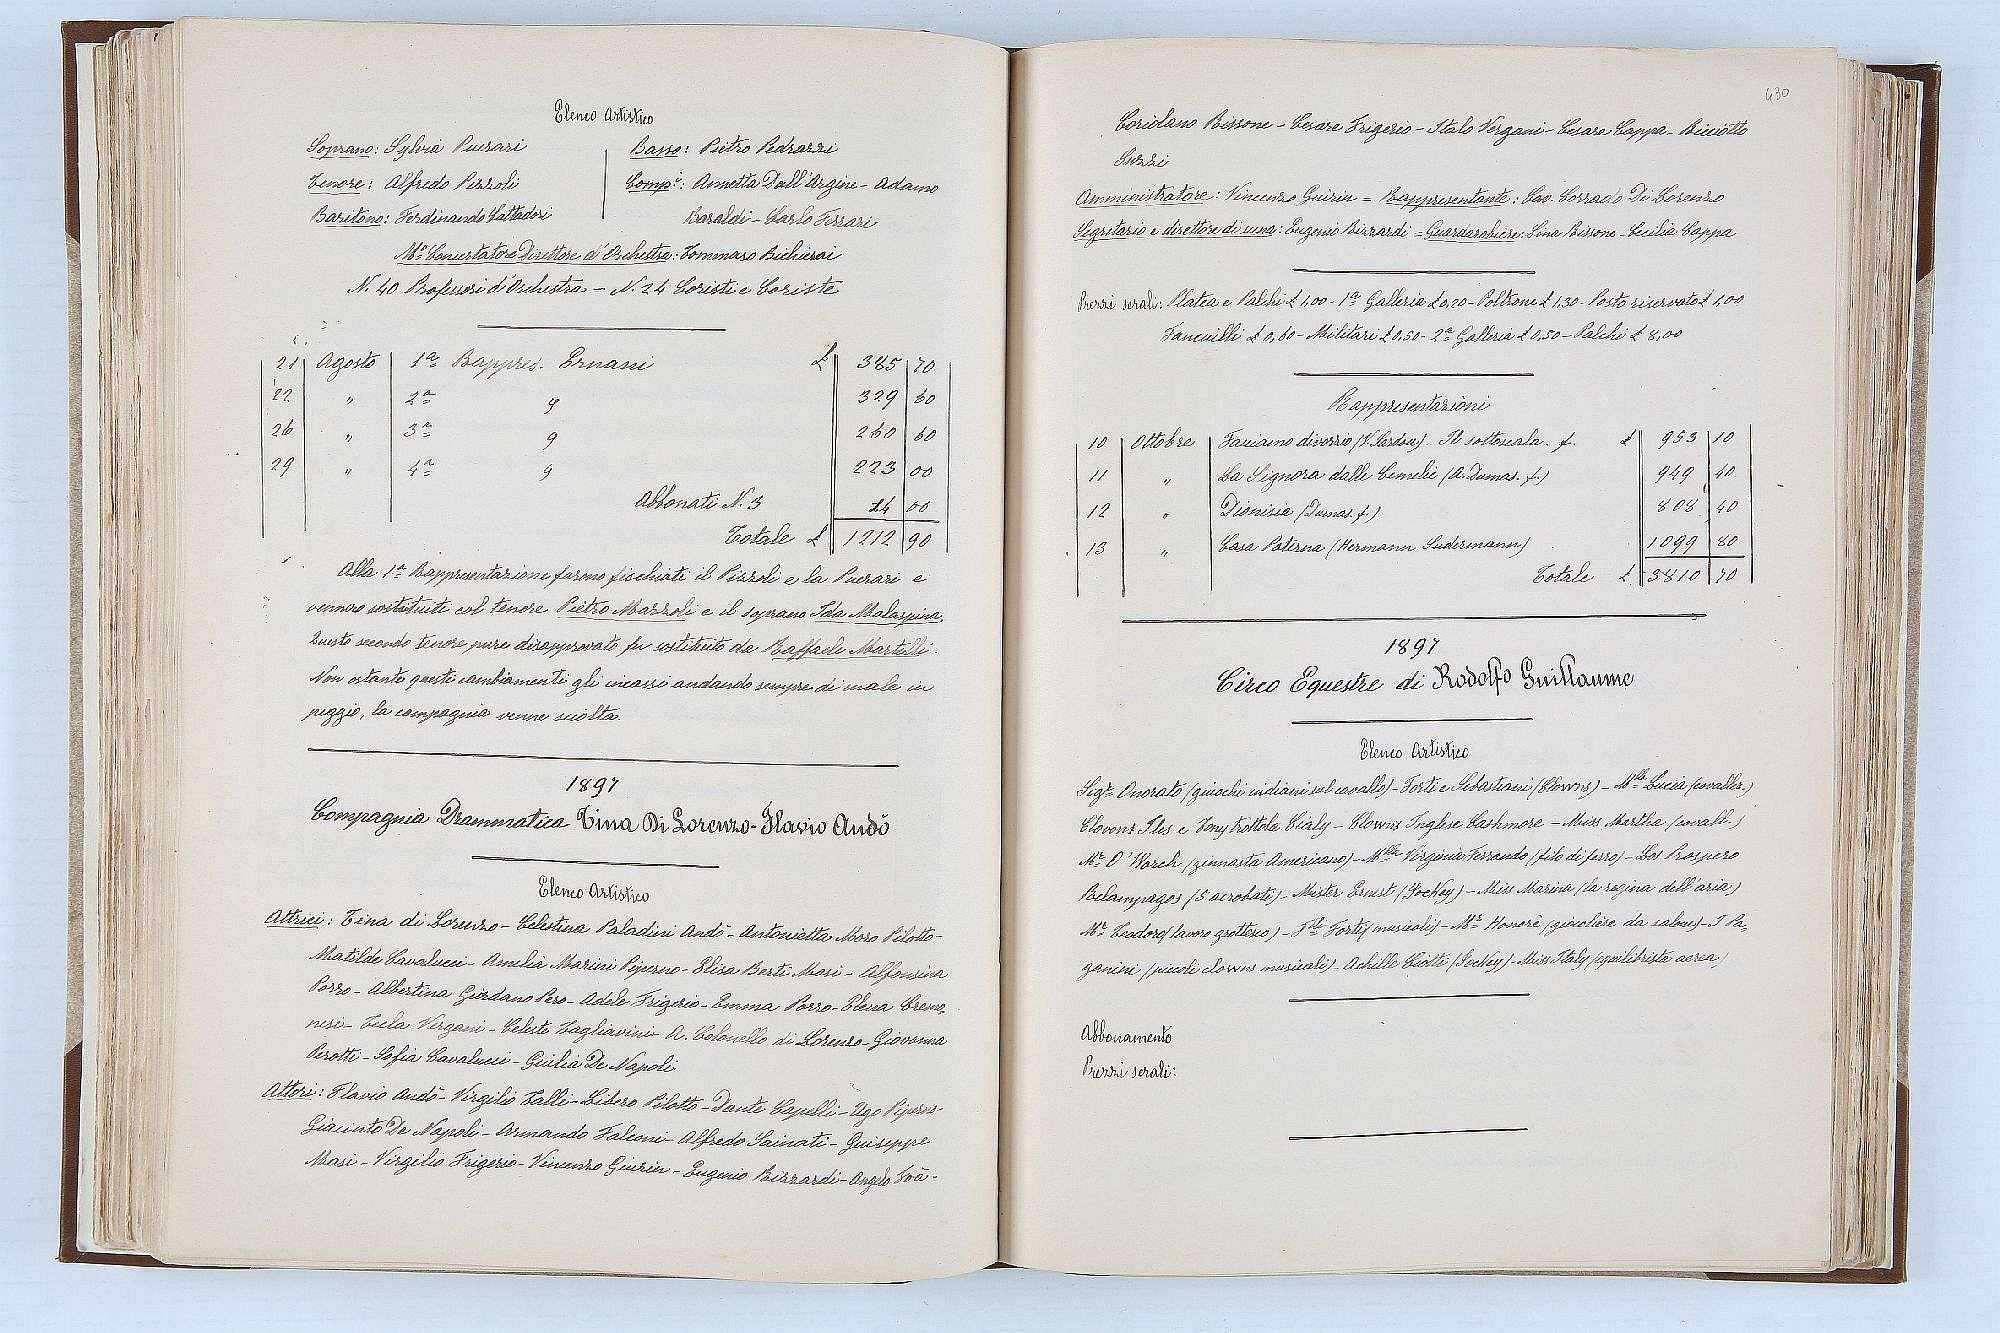 Elenco Artistico
Soprano: Sylvia Puerari
Basso: Pietro Pedrazzi
Tenore: Alfredo Pizzoli
Comp.i: Annetta Dall'Argine - Adamo
Baritono: Ferdinando Cattadori
Baraldi - Carlo Ferrari
M.o Concertatore Direttore d'Orchestra: Tommaso
N. 40 Professori d'Orchestra - N. 24 Coristi e Coriste
21 Agosto 1a Rappres. Ernani £ 385 70
22 " 2a " 329 60
26 " 3a " 260 60
29 " 4a " 223 00
Abbonati N. 3 14 00
Totale £ 1212 90
Alla 1a Rappresentazione furono fischiati il Pizzoli e la Puerari e
vennero sostituiti col tenore Pietro Mazzoli e il soprano Ida Malaspina.
Questo secondo tenore pure disapprovato fu sostituito da Raffaele Martelli.
Non ostante questi cambiamenti gli incassi andando sempre di male in
peggio, la compagnia venne sciolta.
1897
Compagnia Drammatica Tina Di Lorenzo - Flavio Andò
Elenco Artistico
Attrici: Tina di Lorenzo - Celestina Paladini Andò - Antonietta Moro Pilotto -
Matilde Cavalucci - Amelia Marini Piperno - Elisa Berti Masi - Alfonsina
Porro - Albertina Giordano Pero - Adele Frigerio - Emma Porro - Elena Cremo-
nesi - Tecla Vergani - Celeste Tagliavini - A. Colonello di Lorenzo - Giovanna
Perotti - Sofia Cavalucci - Giulia De Napoli
Attori: Flavio Andò - Virgilio Talli - Libero Pilotto - Dante Capelli - Ugo Piperno -
Giacinto De Napoli - Armando Falconi - Alfredo Sainati - Guiseppe
Masi - Virgilio Frigerio - Vincenzo Guirin - Eugenio Rizzardi - Angelo
430
Coriolano Rissone - Cesare Frigerio - Italo Vergani - Cesare Cappa - Ricciotto
Suzzi
Amministratore: Vincenzo Guirin = Rappresentante: Cav. Corrado Di Lorenzo
Segretario e direttore di scena: Eugenio Rizzardi = Guardarobiere: Lina Rissone - Cecilia Cappa
Prezzi serali: Platea e Palchi £ 1,00 - 1a Galleria £ 0,70 - Poltrone £ 1,30 - Posto riservato £ 1,00
Fanciulli £ 0,60 - Militari £ 0,50 - 2a Galleria £ 0,50 - Palchi £ 8,00
Rappresentazioni
10 Ottobre Facciamo divorzio (V. Sardou) Il sottoscala. f. £ 953 10
11 " La Signora dalle Camelie (A. Dumas. f.) 949 40
12 " Dionisia (Dumas. f.) 808 40
13 " Casa Paterna (Hermann Sudermann) 1099 80
Totale £ 3810 70
1897
Circo Equestre di Rodolfo Guillaume
Elenco Artistico
Sig.r Onorato (giuochi indiani sul cavallo) - Forti e Sebastiani (Clowns) - M.lla Lucia (cavaller.)
Clowns Iles e Tony trottola Cialy - Clowns Inglese Cashmore - Miss Martha (cavall.)
M.r O'Worch (ginnasta Americano) - M.lla Virginia Ferrando (filo di ferro) - Los Prospero
Relampagos (5 acrobati) - Mister Ernest (Jockey) - Miss Marina (la regina dell'aria)
M.r Teodoro (lavoro grottesco) - F.lli Forti (musicali) - M.r Honoré (giocoliere da salons) - I Pa-
ganini (piccoli clowns musicali) - Achille Ciotti (Jockey) - Miss Italy (equilibrista aerea)
Abbonamento
Prezzi serali: